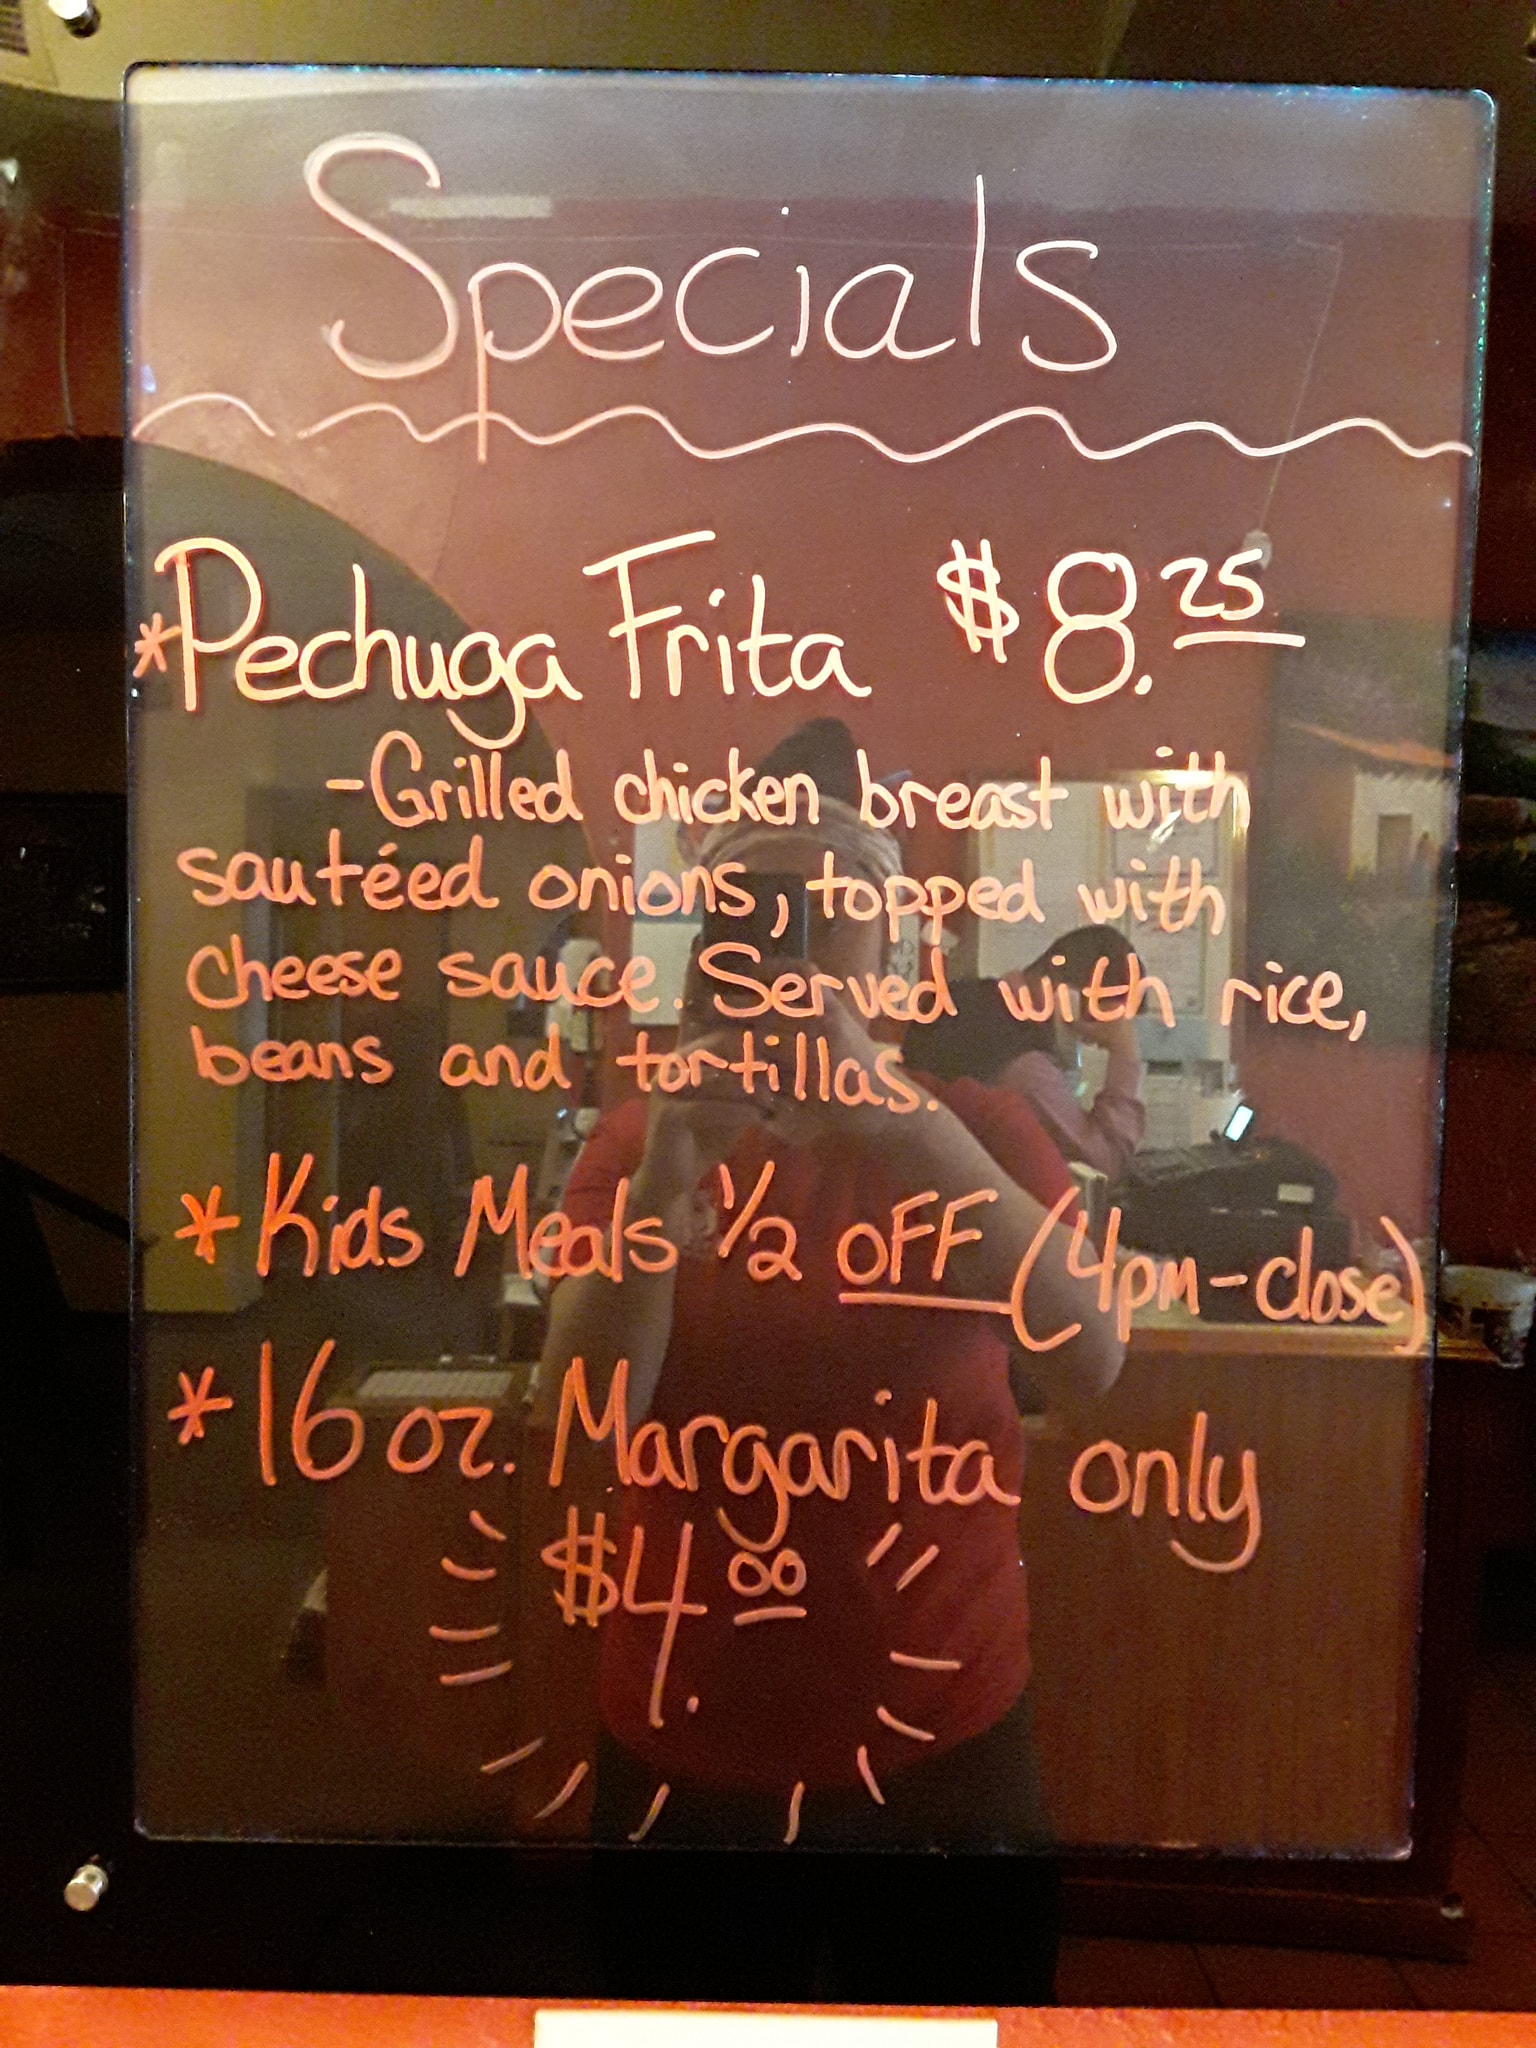 Specials
*Pechuga Frita $8.25
-Grilled chicken breast with
sautéed onions, topped with
cheese sauce. Served with rice,
beans and tortillas.
*Kids Meals 1/2 OFF (4pm-close)
*16 oz. Margarita only
$4.00